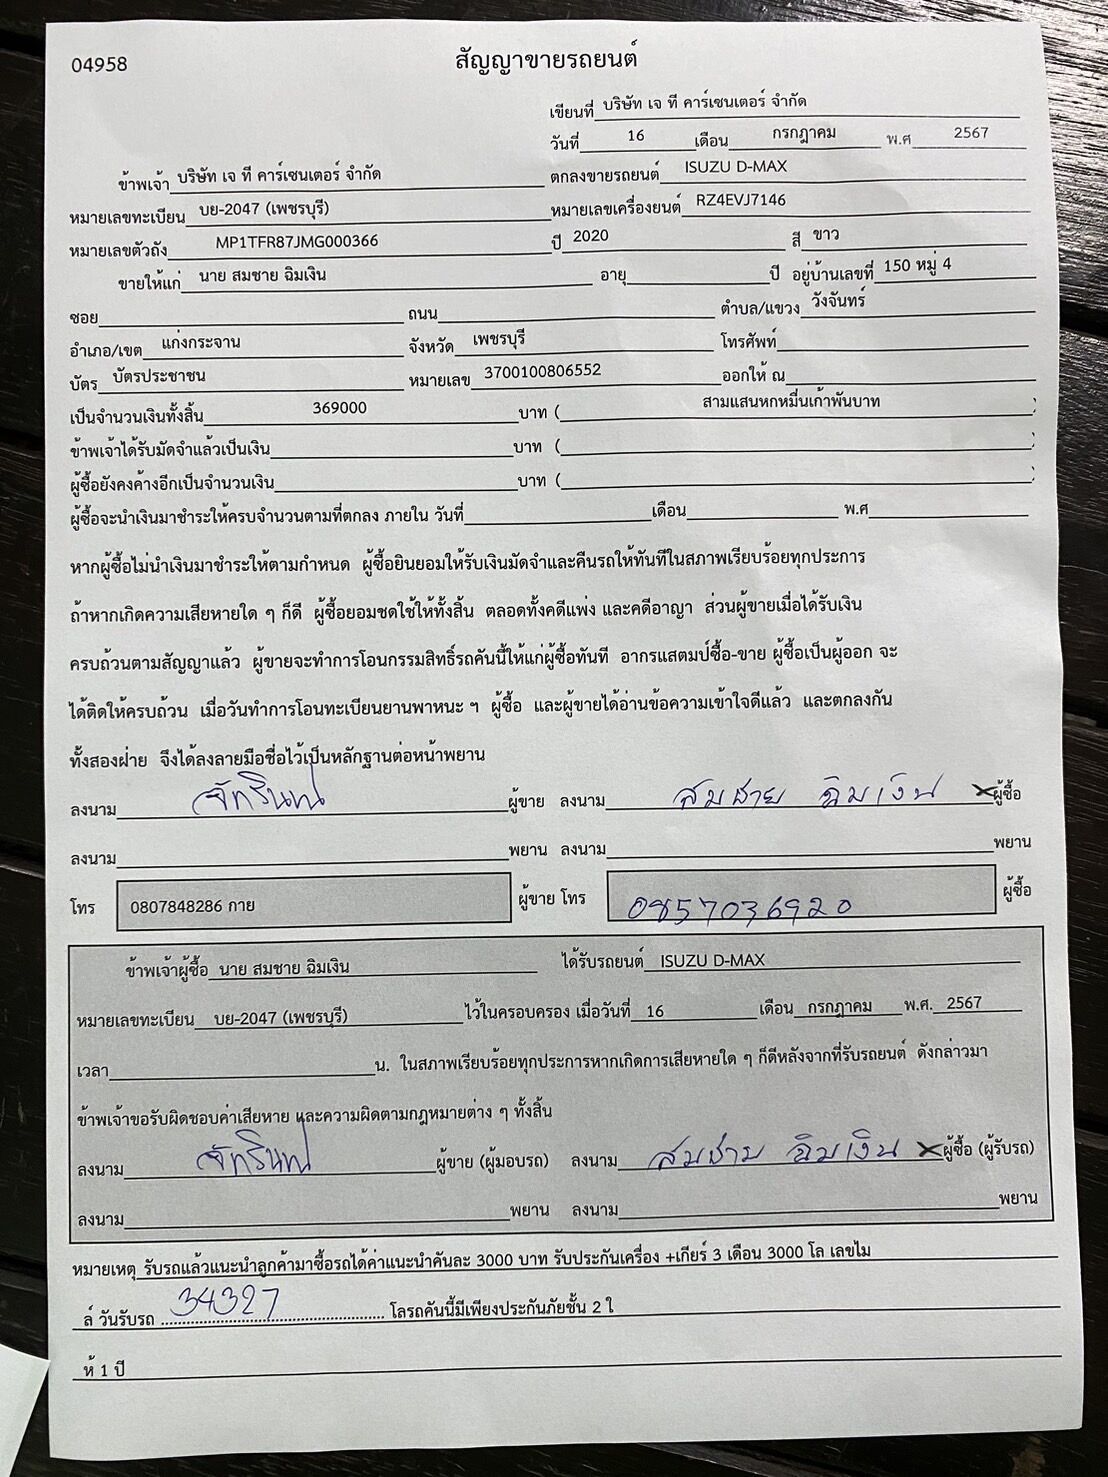 04958
สัญญาขายรถยนต์
เขียนที่ บริษัท เจ ที คาร์เซนเตอร์ จำกัด
วันที่ 16 เดือน กรกฎาคม พ.ศ 2567
ข้าพเจ้า บริษัท เจ ที คาร์เซนเตอร์ จำกัด ตกลงขายรถยนต์ ISUZU D-MAX
หมายเลขทะเบียน บย-2047 (เพชรบุรี) หมายเลขเครื่องยนต์ RZ4EVJ7146
หมายเลขตัวถัง MP1TFR87JMG000366 ปี 2020 สี ขาว
ขายให้แก่ นาย สมชาย ฉิมเงิน อายุ ปี อยู่บ้านเลขที่ 150 หมู่ 4
ซอย ถนน ตำบล/แขวง วังจันทร์
อำเภอ/เขต แก่งกระจาน จังหวัด เพชรบุรี โทรศัพท์
บัตร บัตรประชาชน หมายเลข 3700100806552 ออกให้ ณ
เป็นจำนวนเงินทั้งสิ้น 369000 บาท ( สามแสนหกหมื่นเก้าพันบาท )
ข้าพเจ้าได้รับมัดจำแล้วเป็นเงิน บาท ( )
ผู้ซื้อยังคงค้างอีกเป็นจำนวนเงิน บาท ( )
ผู้ซื้อจะนำเงินมาชำระให้ครบจำนวนตามที่ตกลง ภายใน วันที่ เดือน พ.ศ
หากผู้ซื้อไม่นำเงินมาชำระให้ตามกำหนด ผู้ซื้อยินยอมให้รับเงินมัดจำและคืนรถให้ทันทีในสภาพเรียบร้อยทุกประการ
ถ้าหากเกิดความเสียหายใด ๆ ก็ดี ผู้ซื้อยอมชดใช้ให้ทั้งสิ้น ตลอดทั้งคดีแพ่ง และคดีอาญา ส่วนผู้ขายเมื่อได้รับเงิน
ครบถ้วนตามสัญญาแล้ว ผู้ขายจะทำการโอนกรรมสิทธิ์รถคันนี้ให้แก่ผู้ซื้อทันที อากรแสตมป์ซื้อ-ขาย ผู้ซื้อเป็นผู้ออก จะ
ได้ติดให้ครบถ้วน เมื่อวันทำการโอนทะเบียนยานพาหนะ ฯ ผู้ซื้อ และผู้ขายได้อ่านข้อความเข้าใจดีแล้ว และตกลงกัน
ทั้งสองฝ่าย จึงได้ลงลายมือชื่อไว้เป็นหลักฐานต่อหน้าพยาน
ลงนาม ผู้ขาย ลงนาม สมชาย ฉิมเงิน ผู้ซื้อ
ลงนาม พยาน ลงนาม พยาน
โทร 0807848286 กาย ผู้ขาย โทร 0857036920 ผู้ซื้อ
ข้าพเจ้าผู้ซื้อ นาย สมชาย ฉิมเงิน ได้รับรถยนต์ ISUZU D-MAX
หมายเลขทะเบียน บย-2047 (เพชรบุรี) ไว้ในครอบครอง เมื่อวันที่ 16 เดือน กรกฎาคม พ.ศ. 2567
เวลา น. ในสภาพเรียบร้อยทุกประการหากเกิดการเสียหายใด ๆ ก็ดีหลังจากที่รับรถยนต์ ดังกล่าวมา
ข้าพเจ้าขอรับผิดชอบค่าเสียหาย และความผิดตามกฎหมายต่าง ๆ ทั้งสิ้น
ลงนาม ผู้ขาย (ผู้มอบรถ) ลงนาม สมชาย ฉิมเงิน ผู้ซื้อ (ผู้รับรถ)
ลงนาม พยาน ลงนาม พยาน
หมายเหตุ รับรถแล้วแนะนำลูกค้ามาซื้อรถได้ค่าแนะนำคันละ 3000 บาท รับประกันเครื่อง +เกียร์ 3 เดือน 3000 โล เลขไม
ล์ วันรับรถ 34327 โลรถคันนี้มีเพียงประกันภัยชั้น 2 ใ
ห้ 1 ปี